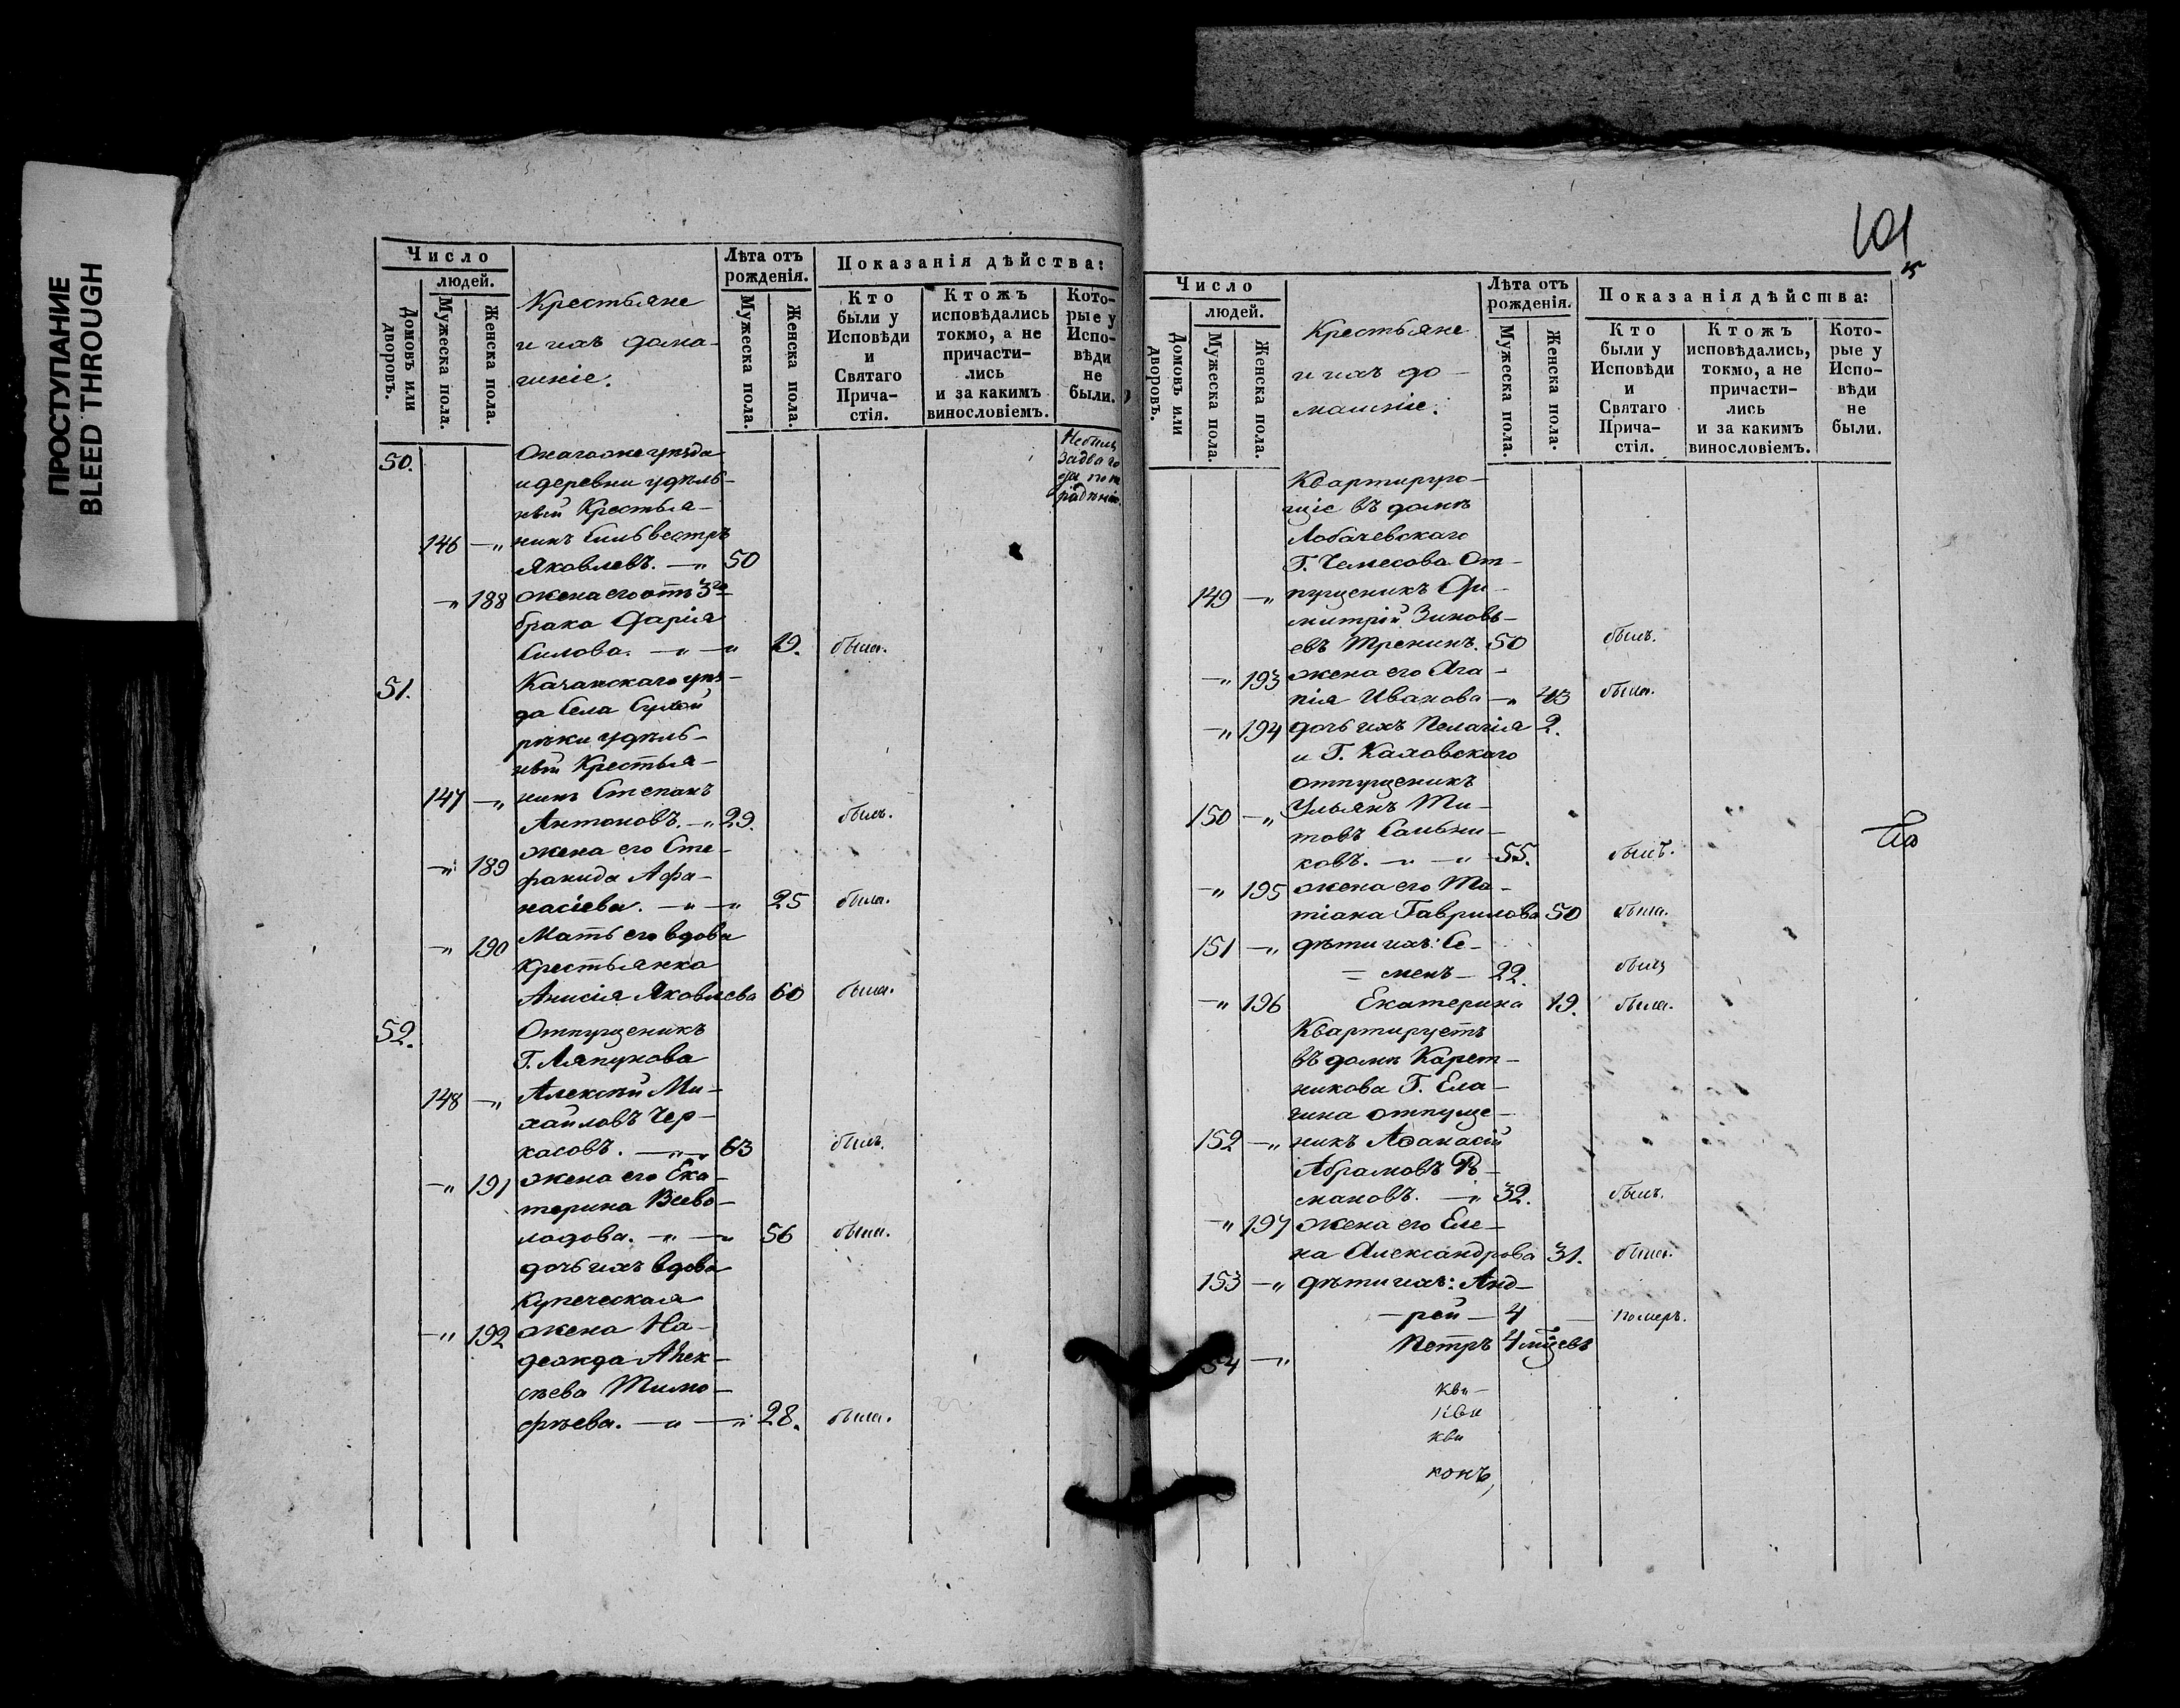 ПРОСТУПАНИЕ
BLEED THROUGH
Число
людей.
Домовъ или дворовъ.
Мужеска пола.
Женска пола.
Крестьяне
и ихъ дома-
шніе.
Лѣта отъ
рожденія.
Мужеска пола.
Женска пола.
Показанія дѣйства:
Кто
были у
Исповѣди
и
Святаго
Прича-
стія.
Ктожъ
исповѣдались
токмо, а не
причасти-
лись
и за какимъ
винословіемъ.
Кото-
рые у
Испо-
вѣди
не
были.
50. Онагоже уѣзда
и деревни удѣль-
ный Крестья-
146 —„ нинъ Сильвестръ
Яковлевъ. —„ 50
—„ 188 жена его отъ 3го
брака Дарія
Силова. —„ —„ 19. была.
51. Казанскаго уѣз-
да села Сухой
рѣки удѣль-
ный Крестья-
147 —„ нинъ Степанъ
Антоновъ. —„ 29. былъ.
—„ 189 жена его Сте-
фанида Афа-
насіева. —„ —„ 25 была.
—„ 190 Мать его вдова
Крестьянка
Анисія Яковлева 60 была.
52. Отпущеникъ
Г. Ляпунова
148 —„ Алексѣй Ми-
хайловъ Чер-
касовъ. —„—„ 63 былъ.
—„ 191 жена его Ека-
терина Всево-
лодова. —„ —„ 56 была.
дочь ихъ вдова
Купеческая
—„ 192 жена На-
дежда Алек-
сѣева Тимо-
фѣева. —„ —„ 28. была.
101
Число
людей.
Домовъ или дворовъ.
Мужеска пола.
Женска пола.
Крестьяне
и ихъ до-
машніе.
Лѣта отъ
рожденія.
Мужеска пола.
Женска пола.
Показанія дѣйства:
Кто
были у
Исповѣди
и
Святаго
Прича-
стія.
Ктожъ
исповѣдались,
токмо, а не
причасти-
лись
и за какимъ
винословіемъ.
Кото-
рые у
Испо-
вѣди
не
были.
Квартирую-
щіе въ домѣ
Лобачевскаго
Г. Чемесова От-
149 —„ пущеникъ Ди-
митрій Зиновь-
евъ Тренинъ. 50 былъ.
—„ 193 жена его Ага-
пія Иванова —„ 43 была.
—„ 194 дочь ихъ Пелагія 2.
и Г. Каховскаго
отпущеникъ
150 —„ Ульянъ Ти-
товъ Сальни-
ковъ. —„ —„ 55. былъ.
—„ 195 жена его Та-
тіана Гаврилова 50 была.
151 —„ дѣти ихъ: Се-
= менъ — 22. былъ
—„ 196 Екатерина 19. была.
Квартируетъ
въ домѣ Карет-
никова Г. Ела-
гина отпуще-
152 —„ никъ Аѳанасій
Абрамовъ Ро-
мановъ. —„ 32. былъ.
—„ 197 жена его Еле-
на Александрова 31. была.
153 —„ дѣти ихъ: Анд-
— рей — 4 — померъ.
54 —„ Петръ 4 мѣсевъ